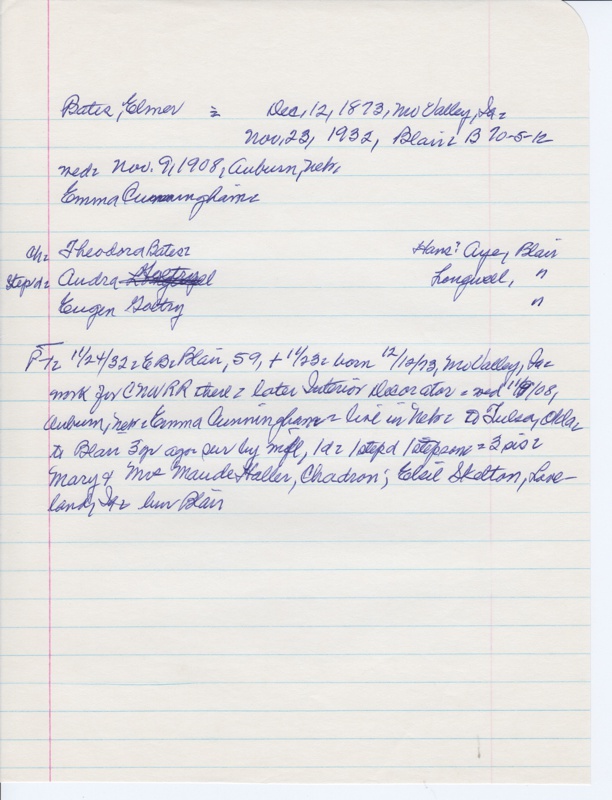 Bates, Elmer = Dec. 12, 1873, Mo Valley, Ia=
Nov. 23, 1932, Blair= B 70-5-12
wed= Nov. 9, 1908, Auburn, Nebr
Emma Cunningham=
Ch= Theodora Bates= Hans? Aye, Blair
Step d= Audra Longwell, "
Eugen Goltry "
PT= 11/24/32= EB= Blair, 59, + 11/23= born 12/12/73, Mo Valley, Ia=
work for CNWRR there= later Interior Decorator= wed 11/9/08,
Auburn, Neb= Emma Cunningham= live in Nebr= to Tulsa, Okla=
to Blair 3 yr ago= sur by wife, 1d= 1 step d 1 stepson= 3 sis=
Mary & Mrs Maude Haller, Chadron; Elsil Skelton, Love-
land, Ia= bur Blair